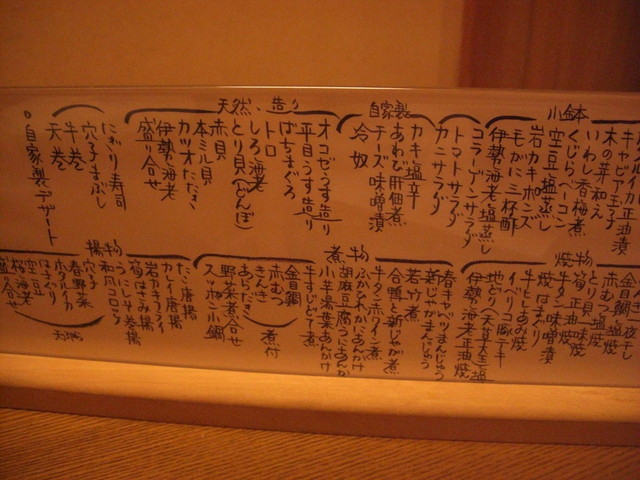 小鉢
ホタルイカ正油漬
キャビア玉子
木の芽和え
いわし香梅煮
くじらベーコン
空豆塩蒸し
岩カキポンズ
毛がに三杯酢
伊勢海老塩蒸し
コラーゲンサラダ
トマトサラダ
カニサラダ
自家製
カキ塩辛
あわび肝佃煮
チーズ味噌漬
冷奴
天然、造り
オコゼうす造り
平目うす造り
ばちまぐろ
トロ
しろ海老
とり貝
赤貝
本ミル貝
カツオたたき
伊勢海老
盛り合せ
にぎり寿司
穴子まぶし
牛巻
天巻
自家製デザート
焼物
金目鯛一夜干し
赤むつ塩焼
とり貝一味焼
筍正油焼
牛タン味噌漬
焼はまぐり
牛ヒレあみ焼
イベリコ豚テキ
地どり
伊勢海老正油焼
煮物
春キャベツまんじゅう
新じゃがまんじゅう
若竹煮
合鴨と新じゃが煮
牛タン赤ワイン煮
ふかひれかにあんかけ
胡麻豆腐うにあんかけ
小芋湯葉あんかけ
牛すじどて煮
金目鯛
赤むつ
きんき
あらだき
煮付
野菜煮合せ
スッポン小鍋
揚物
たこ唐揚
カレイ唐揚
岩カキフライ
筍はさみ揚
うにしそ巻揚
和風コロッケ
穴子
春野菜
ホタルイカ
はまぐり
空豆
桜海老
盛合せ
天ぷら